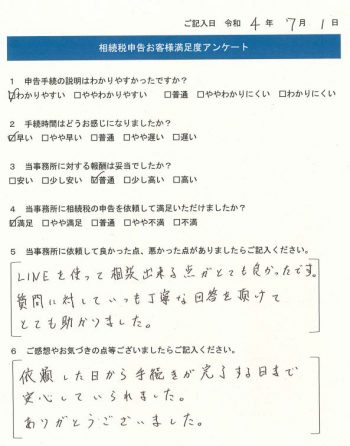 ご記入日 令和 4 年 7 月 1 日
相続税申告お客様満足度アンケート
1 申告手続の説明はわかりやすかったですか?
☑わかりやすい □ややわかりやすい □普通 □ややわかりにくい □わかりにくい
2 手続時間はどうお感じになりましたか?
☑早い □やや早い □普通 □やや遅い □遅い
3 当事務所に対する報酬は妥当でしたか?
□安い □少し安い ☑普通 □少し高い □高い
4 当事務所に相続税の申告を依頼して満足いただけましたか?
☑満足 □やや満足 □普通 □やや不満 □不満
5 当事務所に依頼して良かった点、悪かった点がありましたらご記入ください。
LINEを使って相談出来る点がとても良かったです。
質問に対していつも丁寧な回答を頂けて
とても助かりました。
6 ご感想やお気づきの点等ございましたらご記入ください。
依頼した日から手続きが完了する日まで
安心していられました。
ありがとうございました。